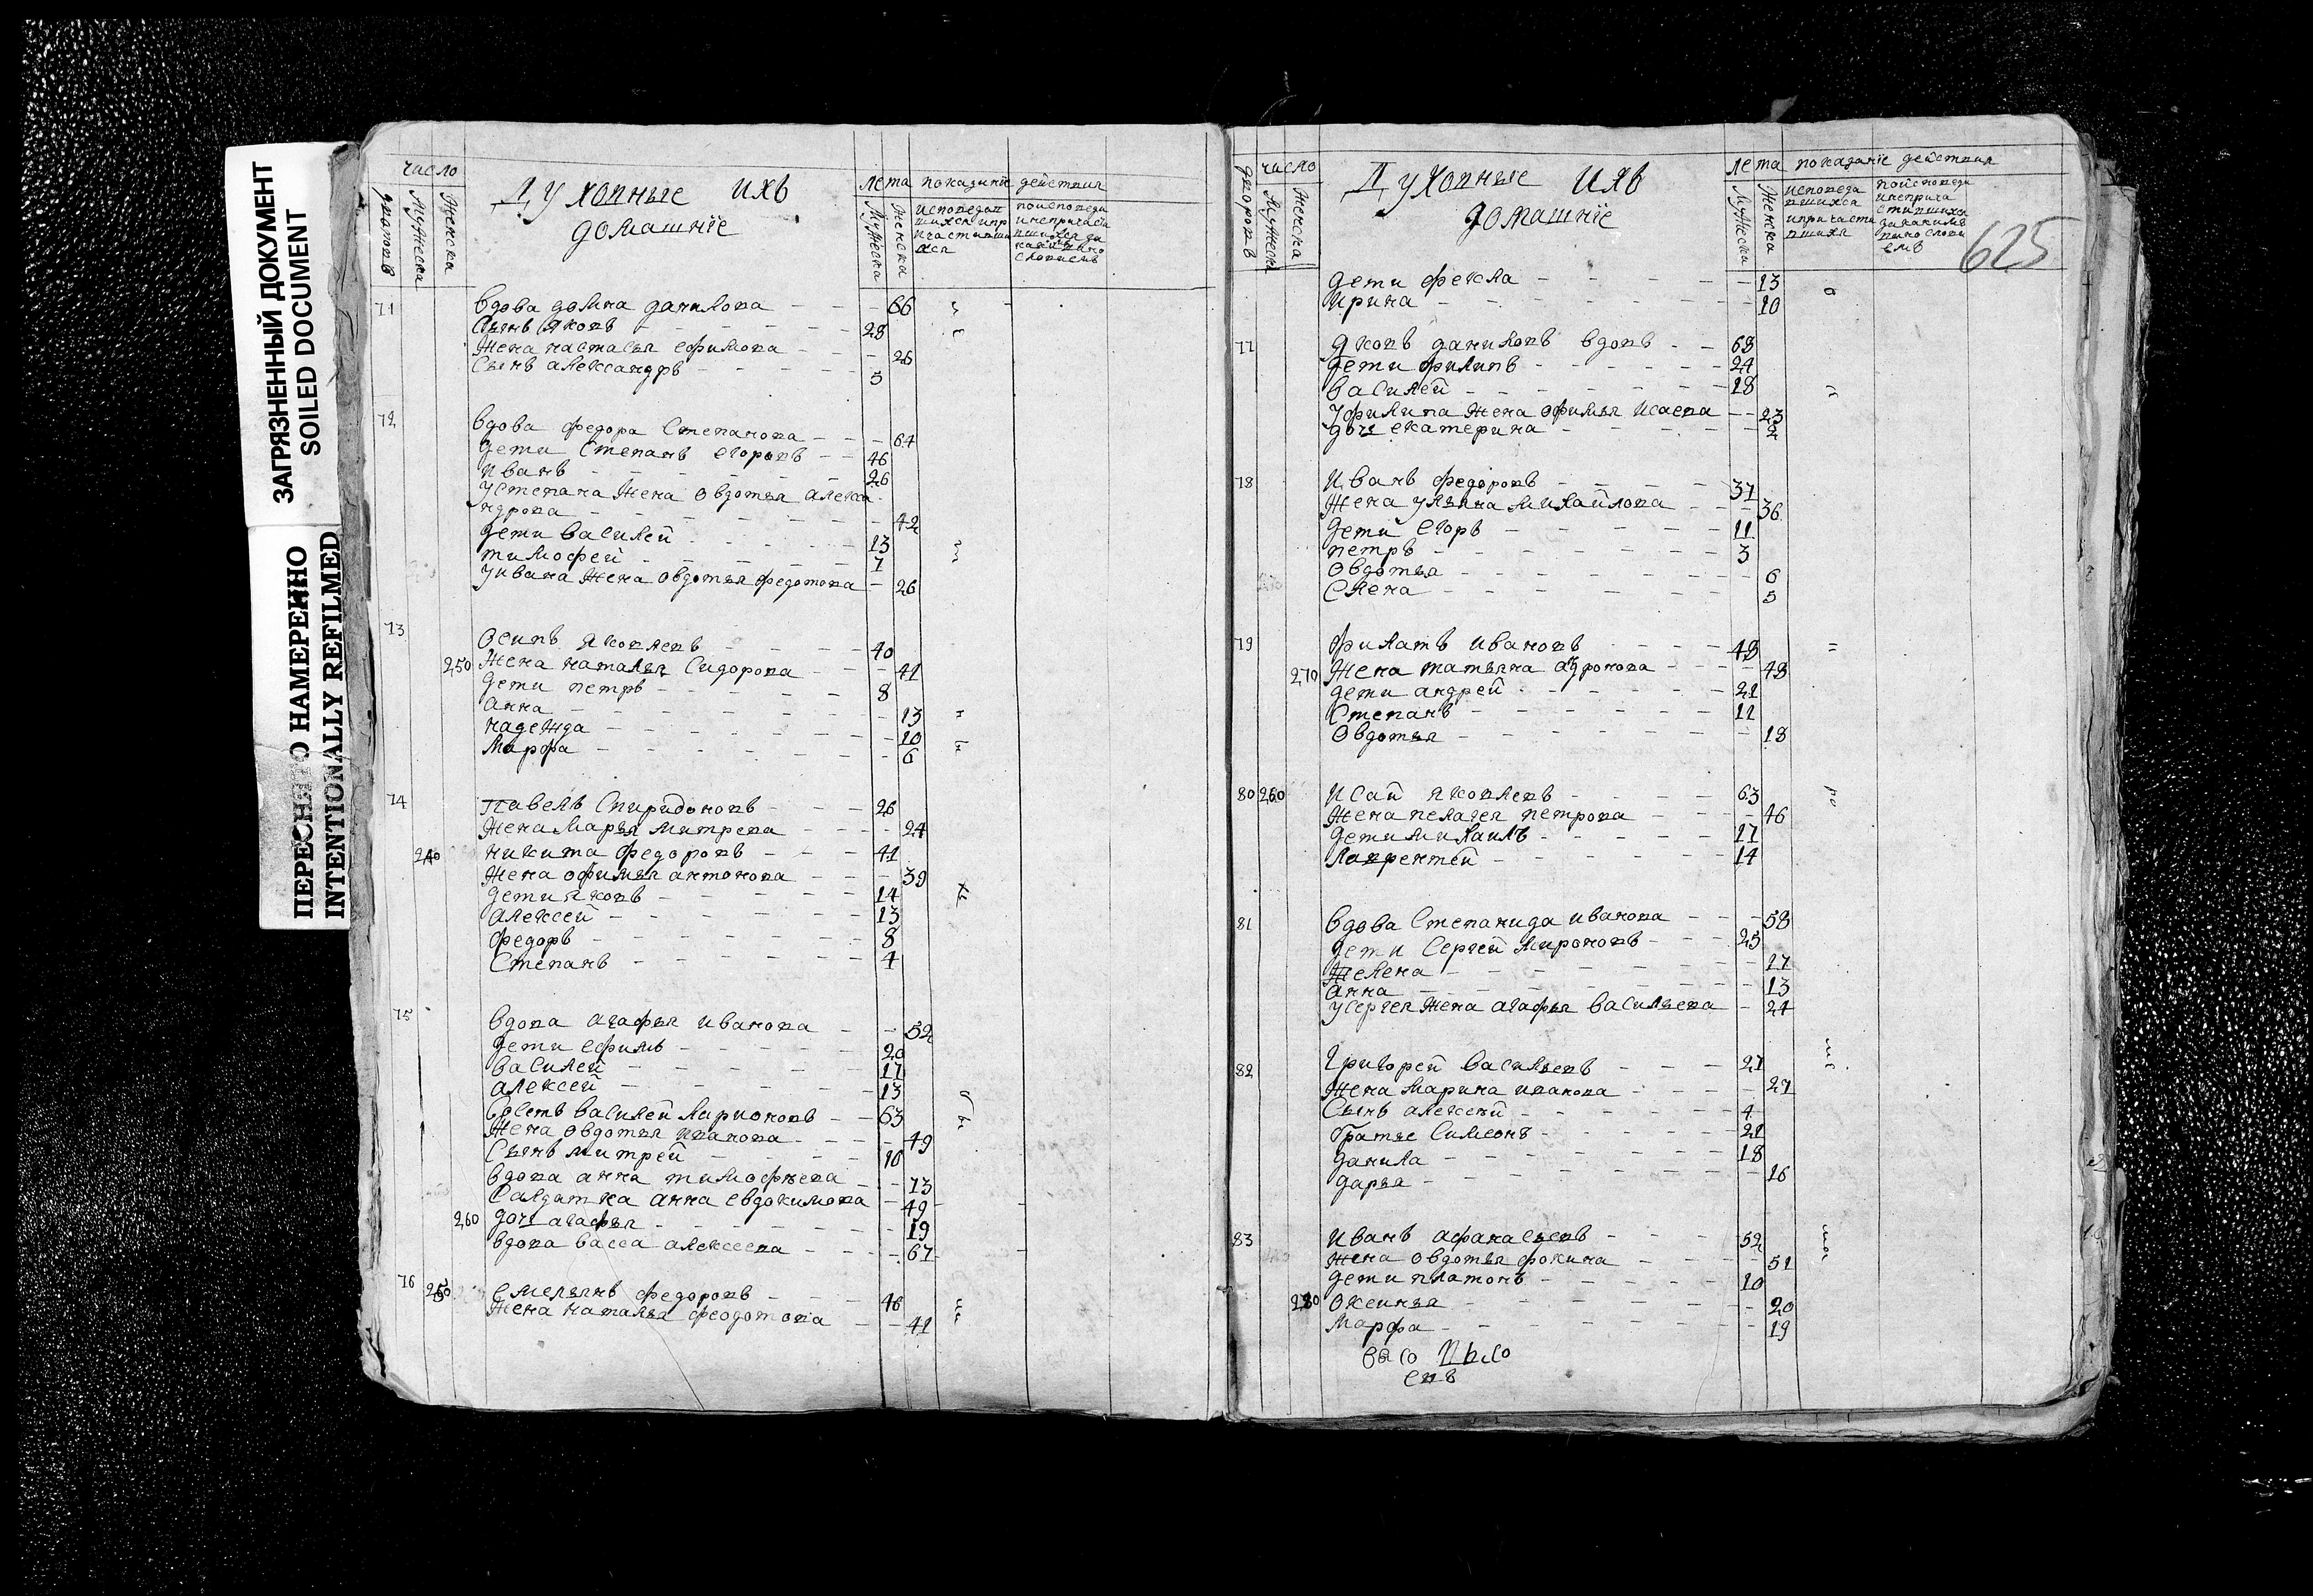 ЗАГРЯЗНЕННЫЙ ДОКУМЕНТ
SOILED DOCUMENT
ПЕРЕСНЯТО НАМЕРЕННО
INTENTIONALLY REFILMED
число
дворовъ
Мужеска
Женска
Духовные ихъ
домашніе
лета
Мужеска
Женска
показание действия
71 вдова домна данилова 66
Сынъ Яковъ 28
Жена настасья ефимова 26
Сынъ александръ 3
72 вдова федора Степанова 64
дети Степанъ егоровъ 46
Иванъ 26
У степана жена овдотья алекса
ндрова 42
дети василей 13
тимофей 7
У ивана жена овдотья федотова 26
73 Осипъ яковлевъ 40
250 Жена наталья Сидорова 41
дети петръ 8
анна 13
надежда 10
Марфа 6
74 Павелъ Спиридоновъ 26
Жена Марья Митрева 24
240 никита федоровъ 41
Жена офимья антонова 39
дети яковъ 14
алексей 13
федоръ 8
Степанъ 4
75 вдова агафья иванова 52
дети ефимъ 20
василей 17
алексей 13
василей Ларионовъ 63
Жена овдотья иванова 49
Сынъ митрей 10
вдова анна тимофеева 73
Салдатка анна евдокимова 49
260 дочь агафья 19
вдова васса алексеева 67
76 250 емельянъ федоровъ 46
Жена наталья феодотова 41
число
дворовъ
Мужеска
Женска
Духовные ихъ
домашніе
лета
Мужеска
Женска
показаніе действия
625
дети фекла 13
Ирина 10
77 Яковъ даниловъ вдовъ 68
дети филипъ 24
василей 18
У филипа жена офимья Исаева 23
дочь екатерина 2
78 Иванъ федоровъ 37
Жена ульяна михайлова 36
дети егоръ 11
петръ 3
Овдотья 6
Елена 5
79 филатъ ивановъ 48
270 Жена татьяна адронова 48
дети андрей 21
Степанъ 11
Овдотья 18
80 260 Исай яковлевъ 63
Жена пелагея петрова 46
дети михаилъ 17
Лаврентей 14
81 вдова Степанида иванова 58
дети Сергей Мироновъ 25
елена 17
анна 13
У сергея жена агафья васильева 24
82 Григорей васильевъ 27
Жена Марина иванова 27
Сынъ алексей 4
братье Симеонъ 21
данила 18
дарья 16
83 Иванъ афанасьевъ 52
Жена овдотья фокина 51
дети платонъ 10
280 Оксинья 20
Марфа 19